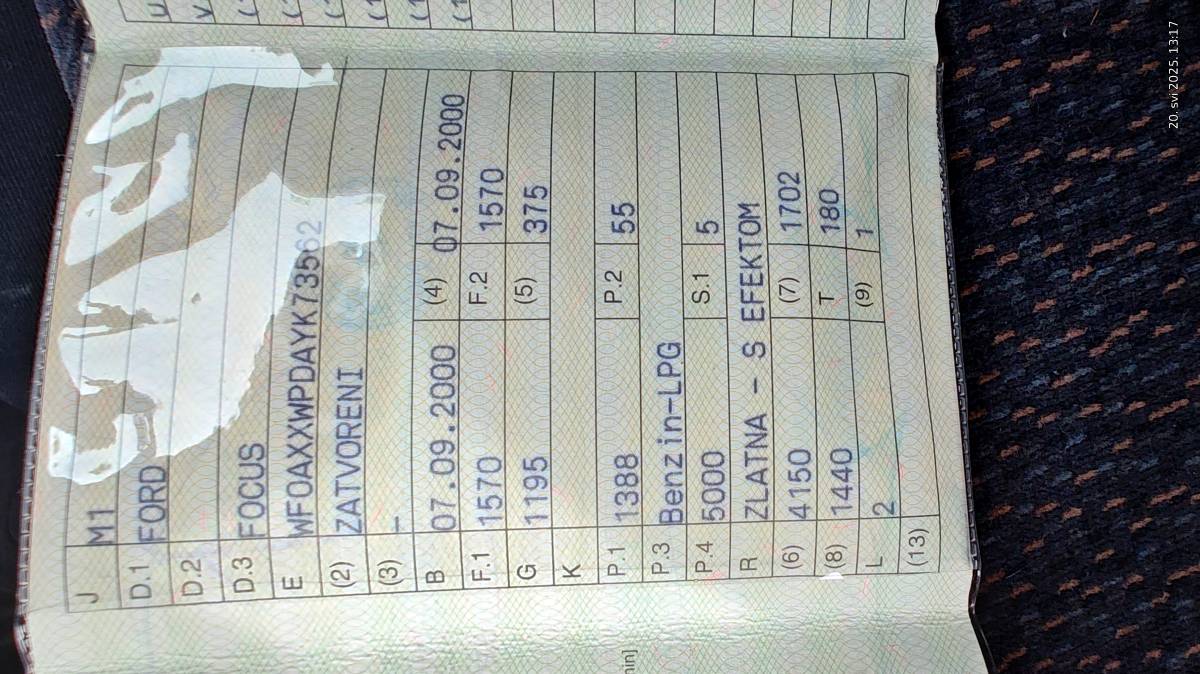 J M1
D.1 FORD
D.2
D.3 FOCUS
E WFOAXXWPDAYK73562
(2) ZATVORENI
(3) -
B 07.09.2000 (4) 07.09.2000
F.1 1570 F.2 1570
G 1195 (5) 375
K
P.1 1388 P.2 55
P.3 Benzin-LPG
P.4 5000 S.1 5
R ZLATNA - S EFEKTOM
(6) 4150 (7) 1702
(8) 1440 T 180
L 2 (9) 1
(13)
20. svi 2025. 13:17